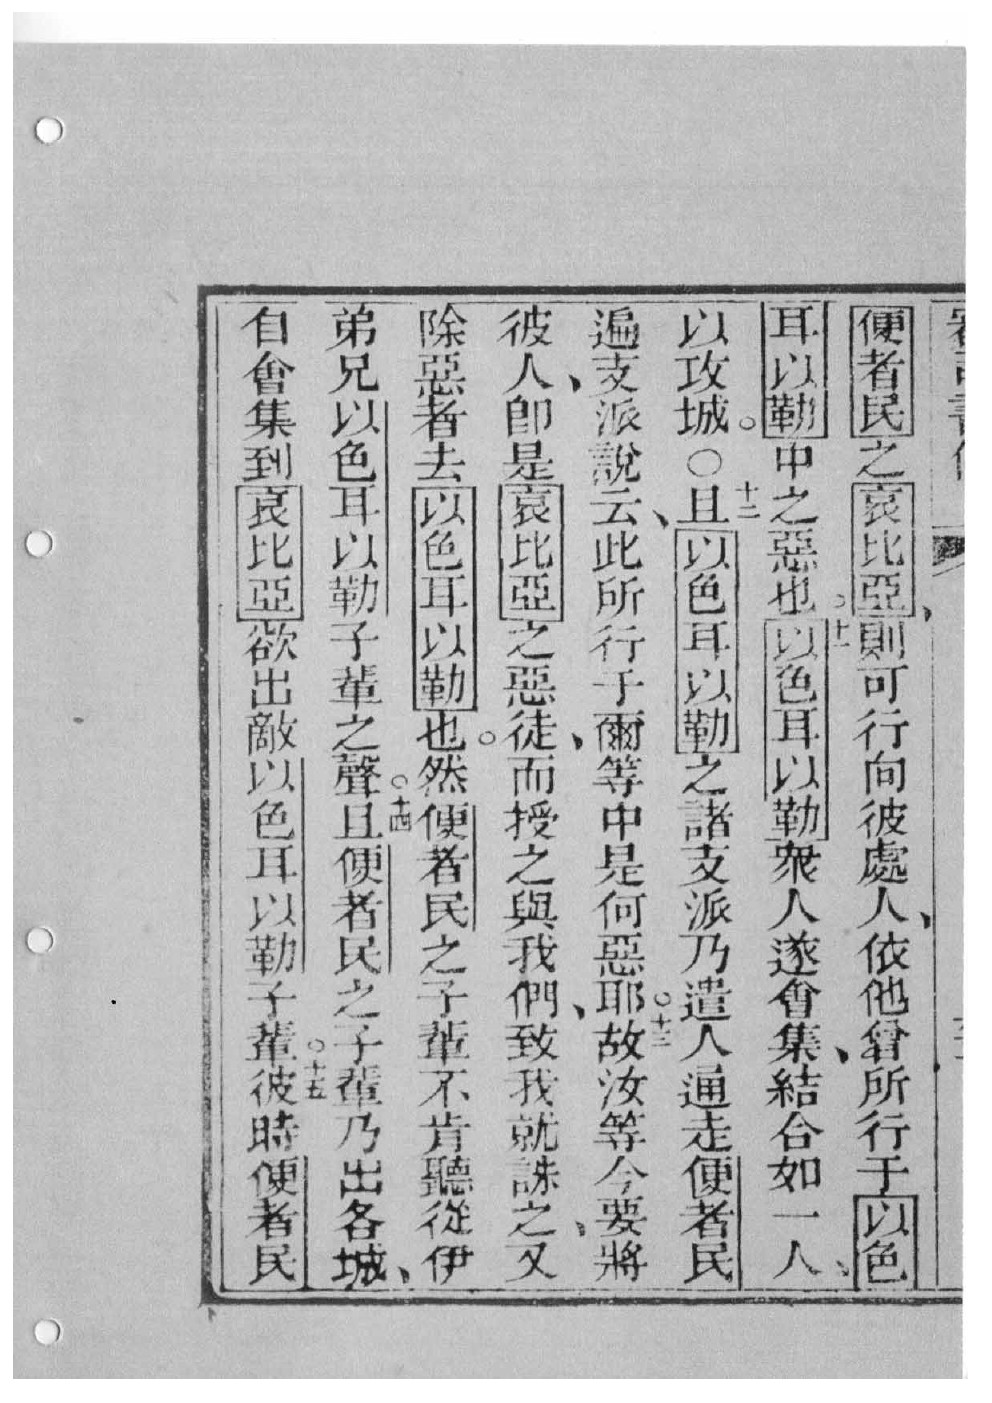 便者民之哀比亞、則可行向彼處人、依他曾所行于以色
耳以勒中之惡也。十一以色耳以勒衆人遂會集、結合如一人、
以攻城。○十二且以色耳以勒之諸支派乃遣人通走便者民
遍支派說云、此所行于爾等中是何惡耶。十三故汝等今要將
彼人、卽是哀比亞之惡徒、而授之與我們、致我就誅之、又
除惡者去以色耳以勒也。然便者民之子輩不肯聽從伊
弟兄以色耳以勒子輩之聲。十四且便者民之子輩乃出各城、
自會集到哀比亞欲出敵以色耳以勒子輩。十五彼時便者民